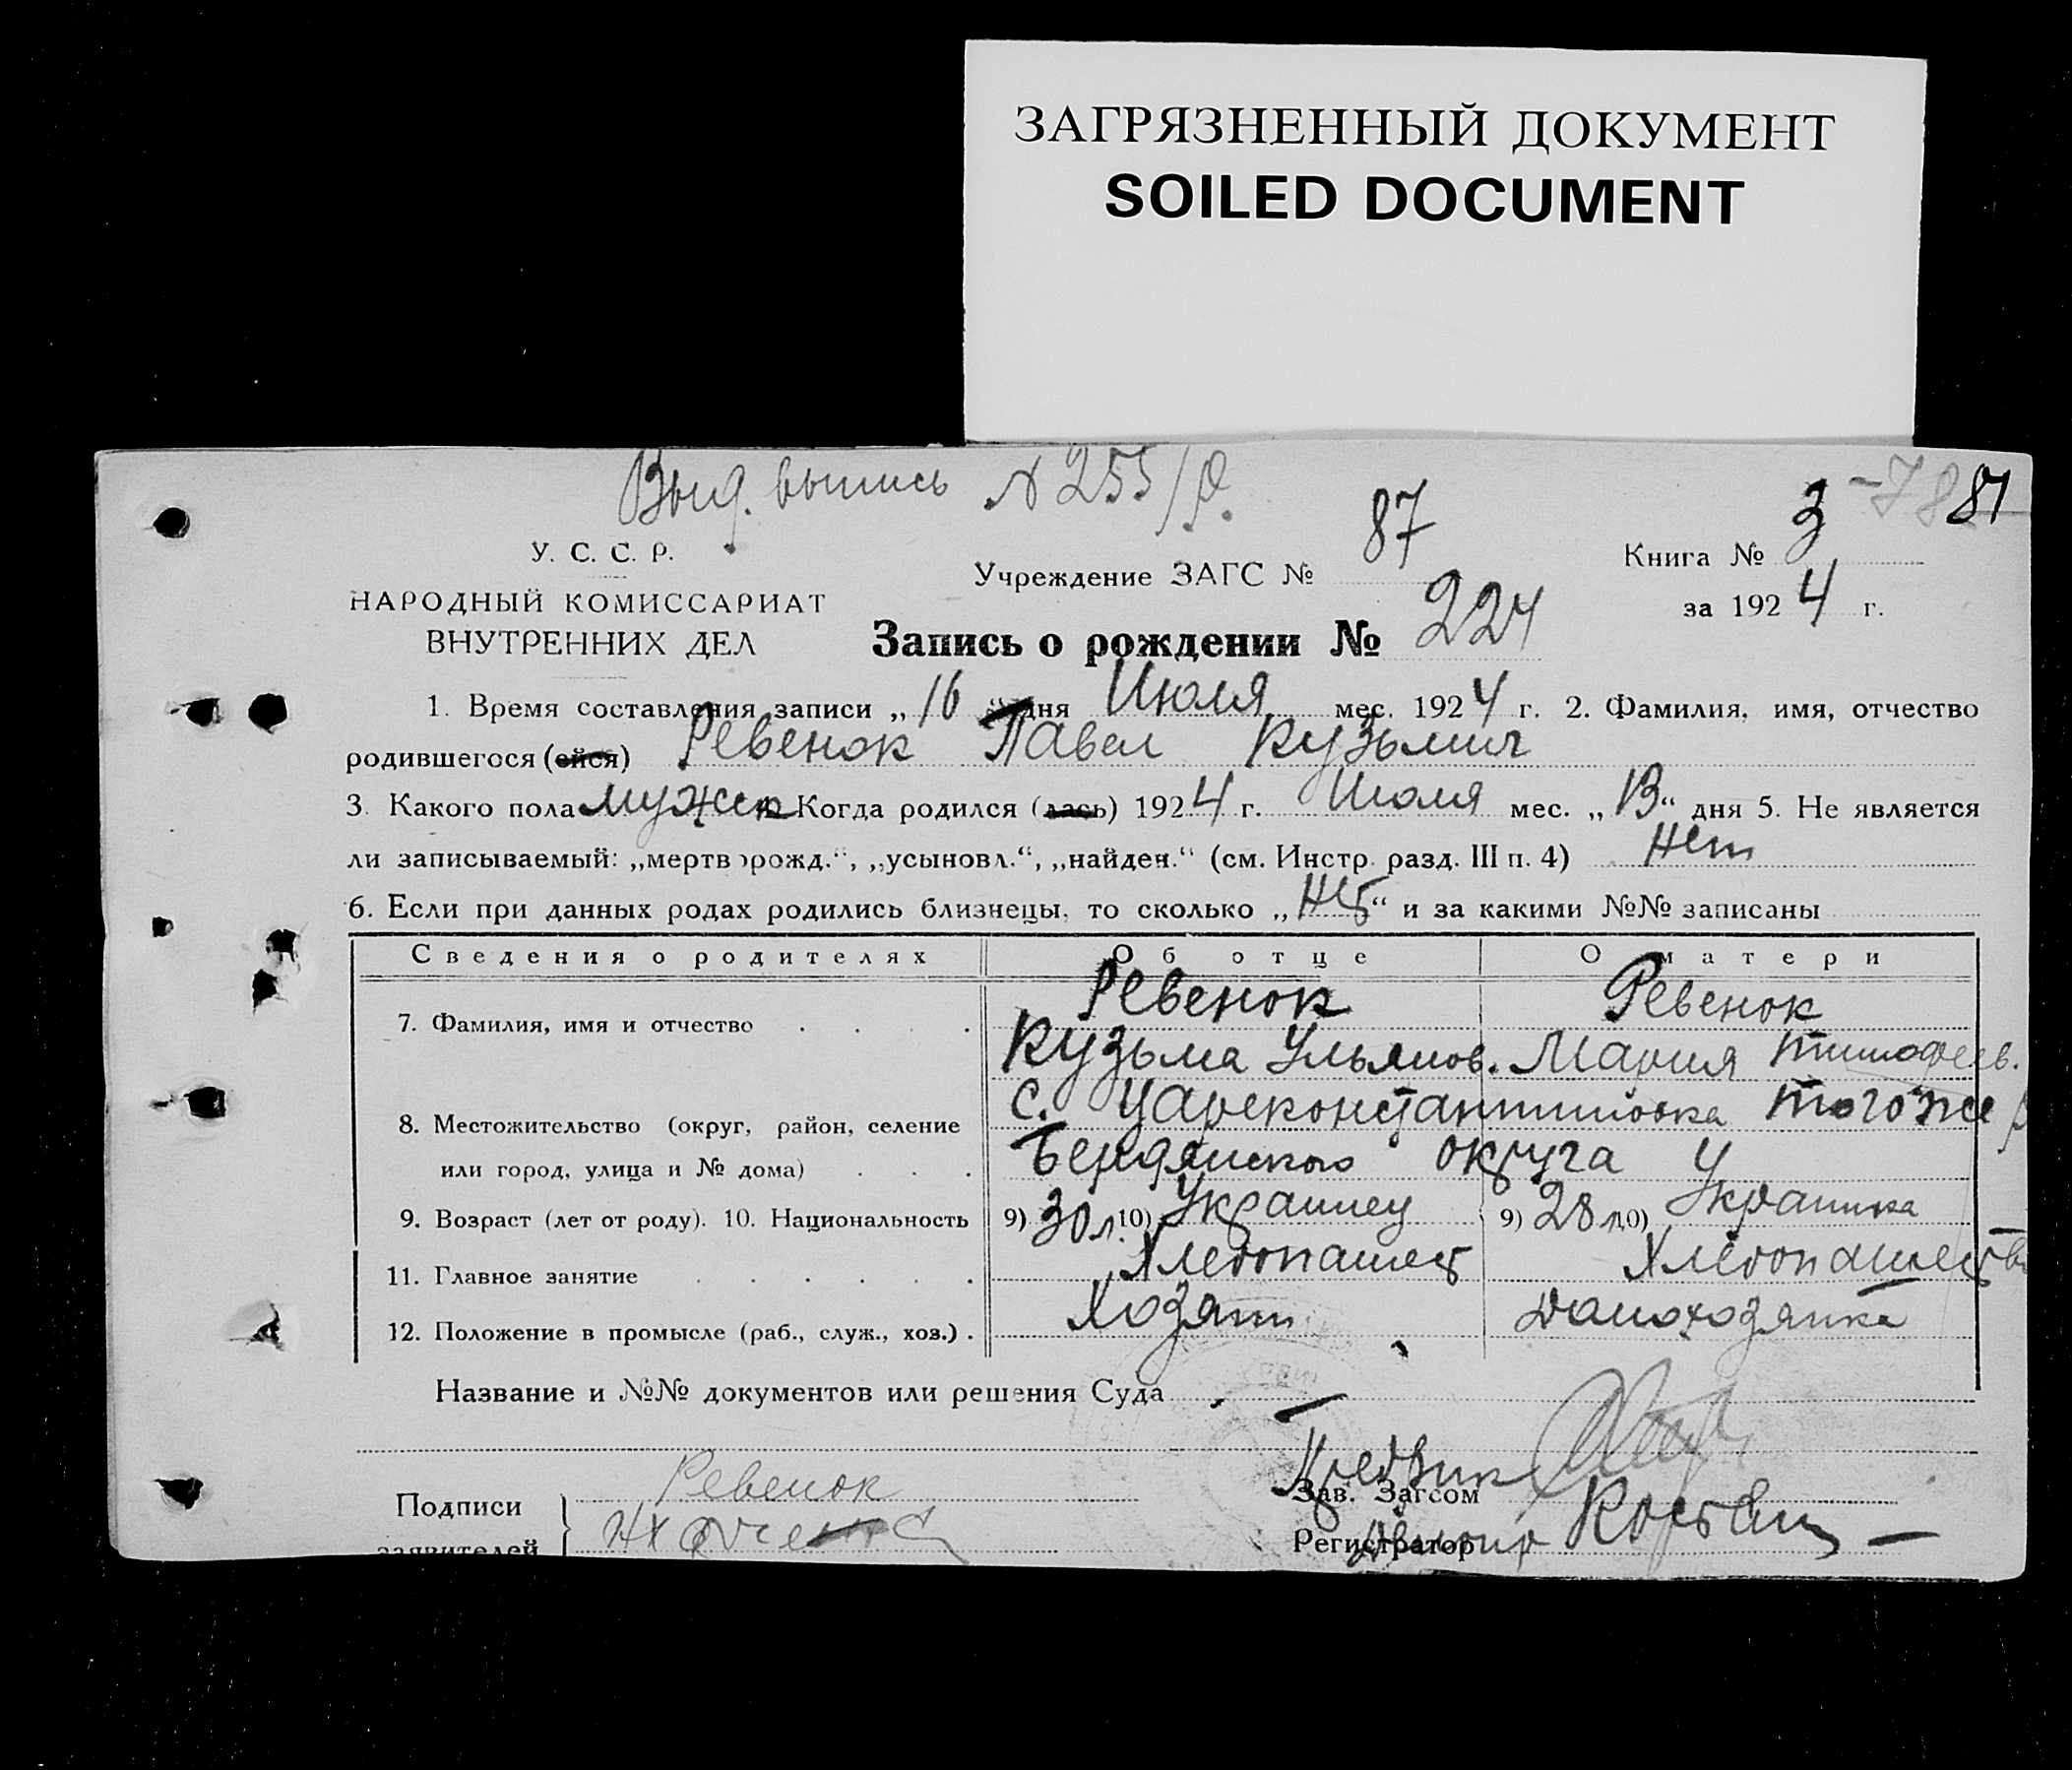 ЗАГРЯЗНЕННЫЙ ДОКУМЕНТ
SOILED DOCUMENT
Выд. выпись № 255/р.
3 -78 81
У. С. С. Р.
НАРОДНЫЙ КОМИССАРИАТ
ВНУТРЕННИХ ДЕЛ
Учреждение ЗАГС № 87
Книга № 3
за 1924 г.
Запись о рождении № 224
1. Время составления записи „16“ дня Июля мес. 1924 г. 2. Фамилия, имя, отчество
родившегося (ейся) Ревенок Павел Кузьмич
3. Какого пола мужск 4. Когда родился (лась) 1924 г. Июля мес. „13“ дня 5. Не является
ли записываемый: „мертворожд.“, „усыновл.“, „найден.“ (см. Инстр. разд. III п. 4) нет
6. Если при данных родах родились близнецы, то сколько „нет“ и за какими №№ записаны
Сведения о родителях Об отце О матери
7. Фамилия, имя и отчество Ревенок Ревенок
Кузьма Ульянов. Мария Тимофеев.
8. Местожительство (округ, район, селение с. Цареконстантиновка того же р
или город, улица и № дома) Бердянского округа
9. Возраст (лет от роду). 10. Национальность 9) 30 л. 10) Украинец 9) 28 л 10) Украинка
11. Главное занятие Хлебопашест Хлебопашество
12. Положение в промысле (раб., служ., хоз.) Хозяин домохозяйка
Название и №№ документов или решения Суда —
Подписи Ревенок
заявителей
Зав. Загсом
Регистратор